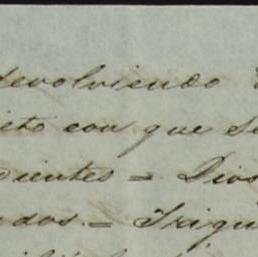 devolviendo
ito con que se
dientes = Dios
ados. = Iriqu